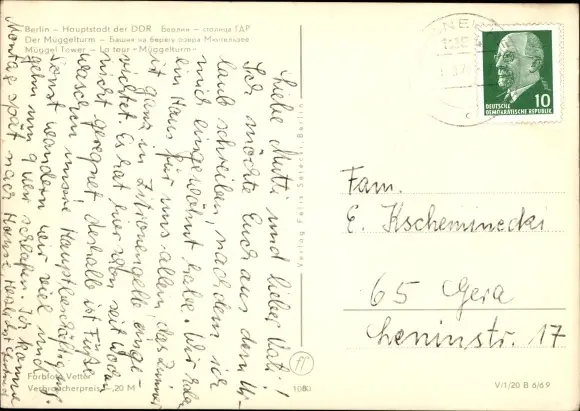 Berlin – Hauptstadt der DDR Берлин – столица ГДР
Der Müggelturm – Башня на берегу озера Мюггельзее
Müggel Tower – La tour «Müggelturm»
Liebe Mutti und lieber Vati!
Ich möchte Euch aus dem Ur-
laub schreiben, nachdem ich
mich eingewöhnt habe. Wir haben
ein Haus für uns allein, das Zimmer
ist ganz in Zitronengelb einge-
richtet. Es hat hier schon seit Wochen
nicht geregnet, deshalb ist Füße
waschen unsere Hauptbeschäftigung.
Sonst wandern wir viel und
gehn um 9 Uhr schlafen. Ich komme
Montag spät nach Hause.
Farbfoto: Vetter
Verbraucherpreis –,20 M
1080
Verlag Felix Setecki, Berlin
DEUTSCHE
DEMOKRATISCHE REPUBLIK
10
Fam.
E. Kscheminecki
65 Gera
Leninstr. 17
V/1/20 B 6/69